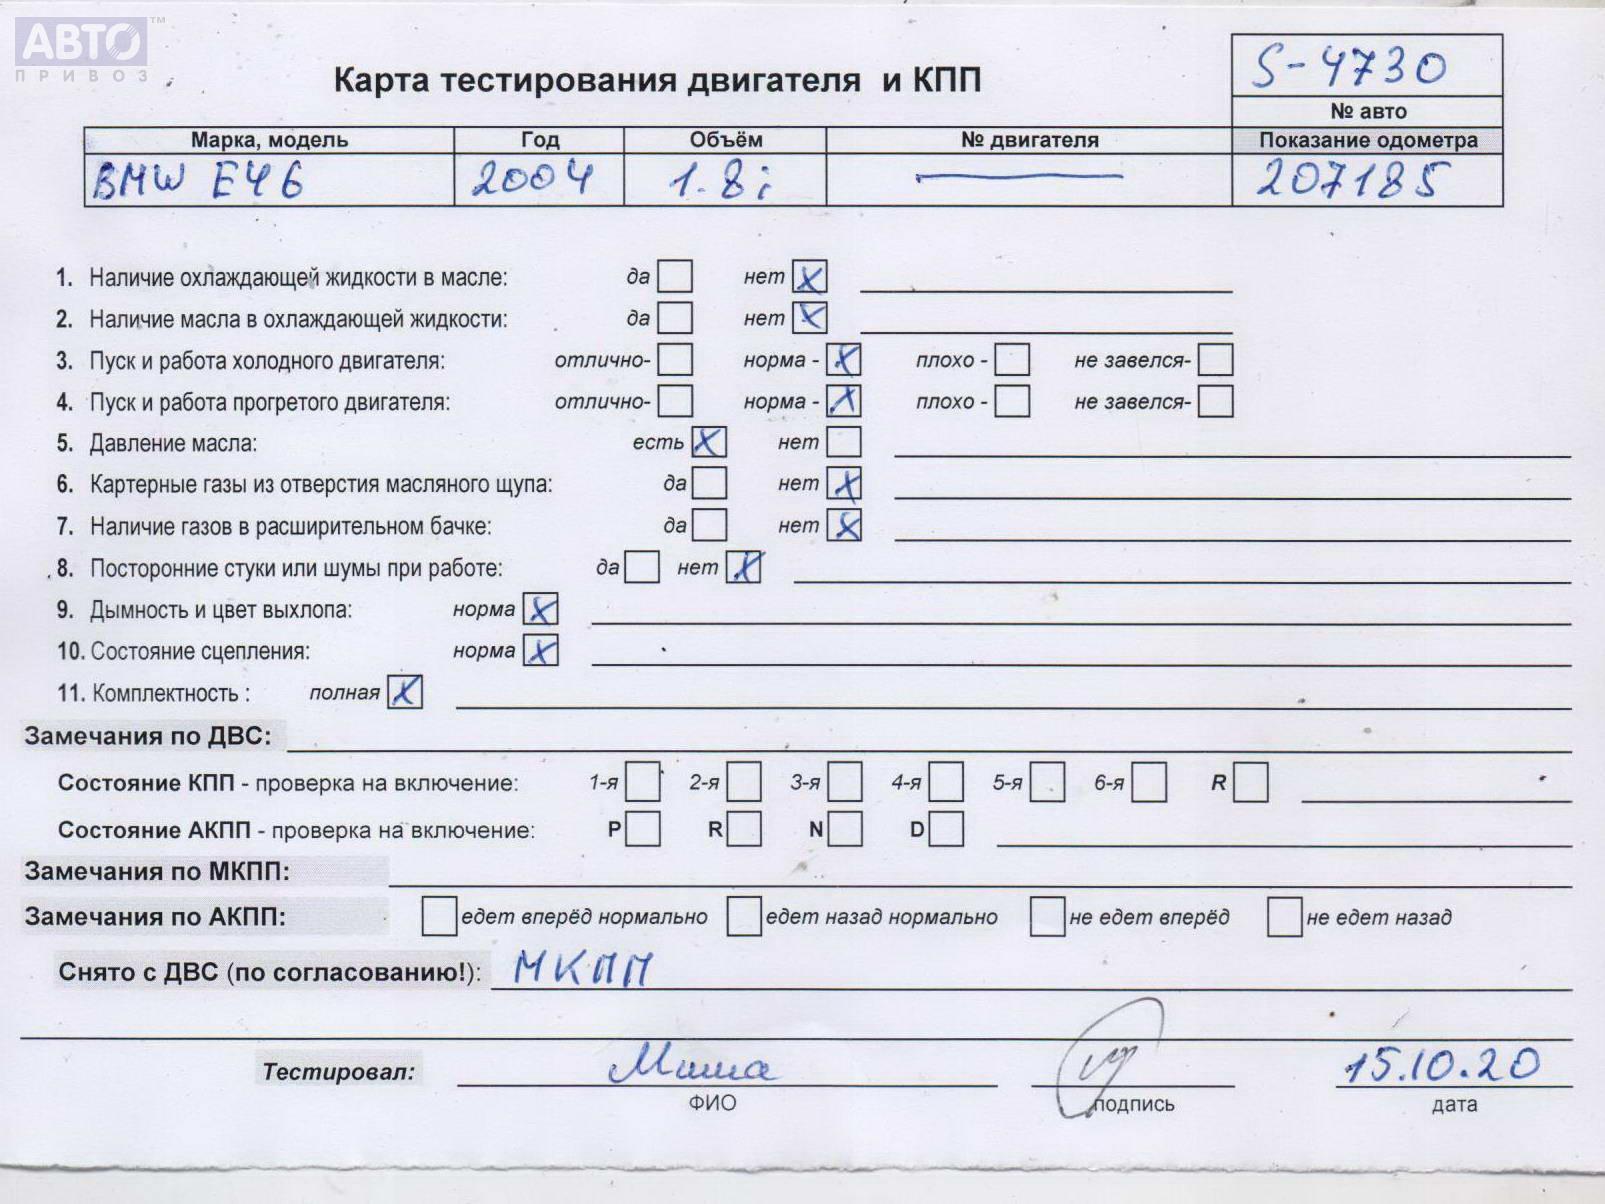 АВТО™
ПРИВОЗ
Карта тестирования двигателя и КПП
S-4730
№ авто
Марка, модель Год Объём № двигателя Показание одометра
BMW E46 2004 1.8i — 207185
1. Наличие охлаждающей жидкости в масле: да нет X
2. Наличие масла в охлаждающей жидкости: да нет X
3. Пуск и работа холодного двигателя: отлично- норма - X плохо - не завелся-
4. Пуск и работа прогретого двигателя: отлично- норма - X плохо - не завелся-
5. Давление масла: есть X нет
6. Картерные газы из отверстия масляного щупа: да нет X
7. Наличие газов в расширительном бачке: да нет X
8. Посторонние стуки или шумы при работе: да нет X
9. Дымность и цвет выхлопа: норма X
10. Состояние сцепления: норма X
11. Комплектность : полная X
Замечания по ДВС:
Состояние КПП - проверка на включение: 1-я 2-я 3-я 4-я 5-я 6-я R
Состояние АКПП - проверка на включение: P R N D
Замечания по МКПП:
Замечания по АКПП: едет вперёд нормально едет назад нормально не едет вперёд не едет назад
Снято с ДВС (по согласованию!): МКПП
Тестировал: Миша 15.10.20
ФИО подпись дата